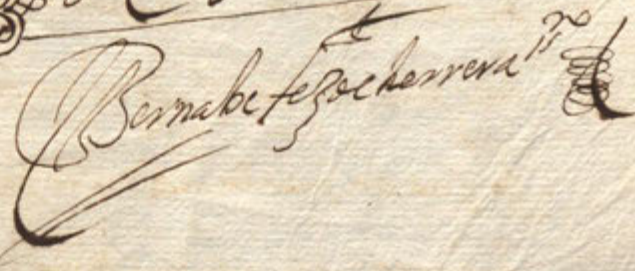 Bernabe frz de herrera